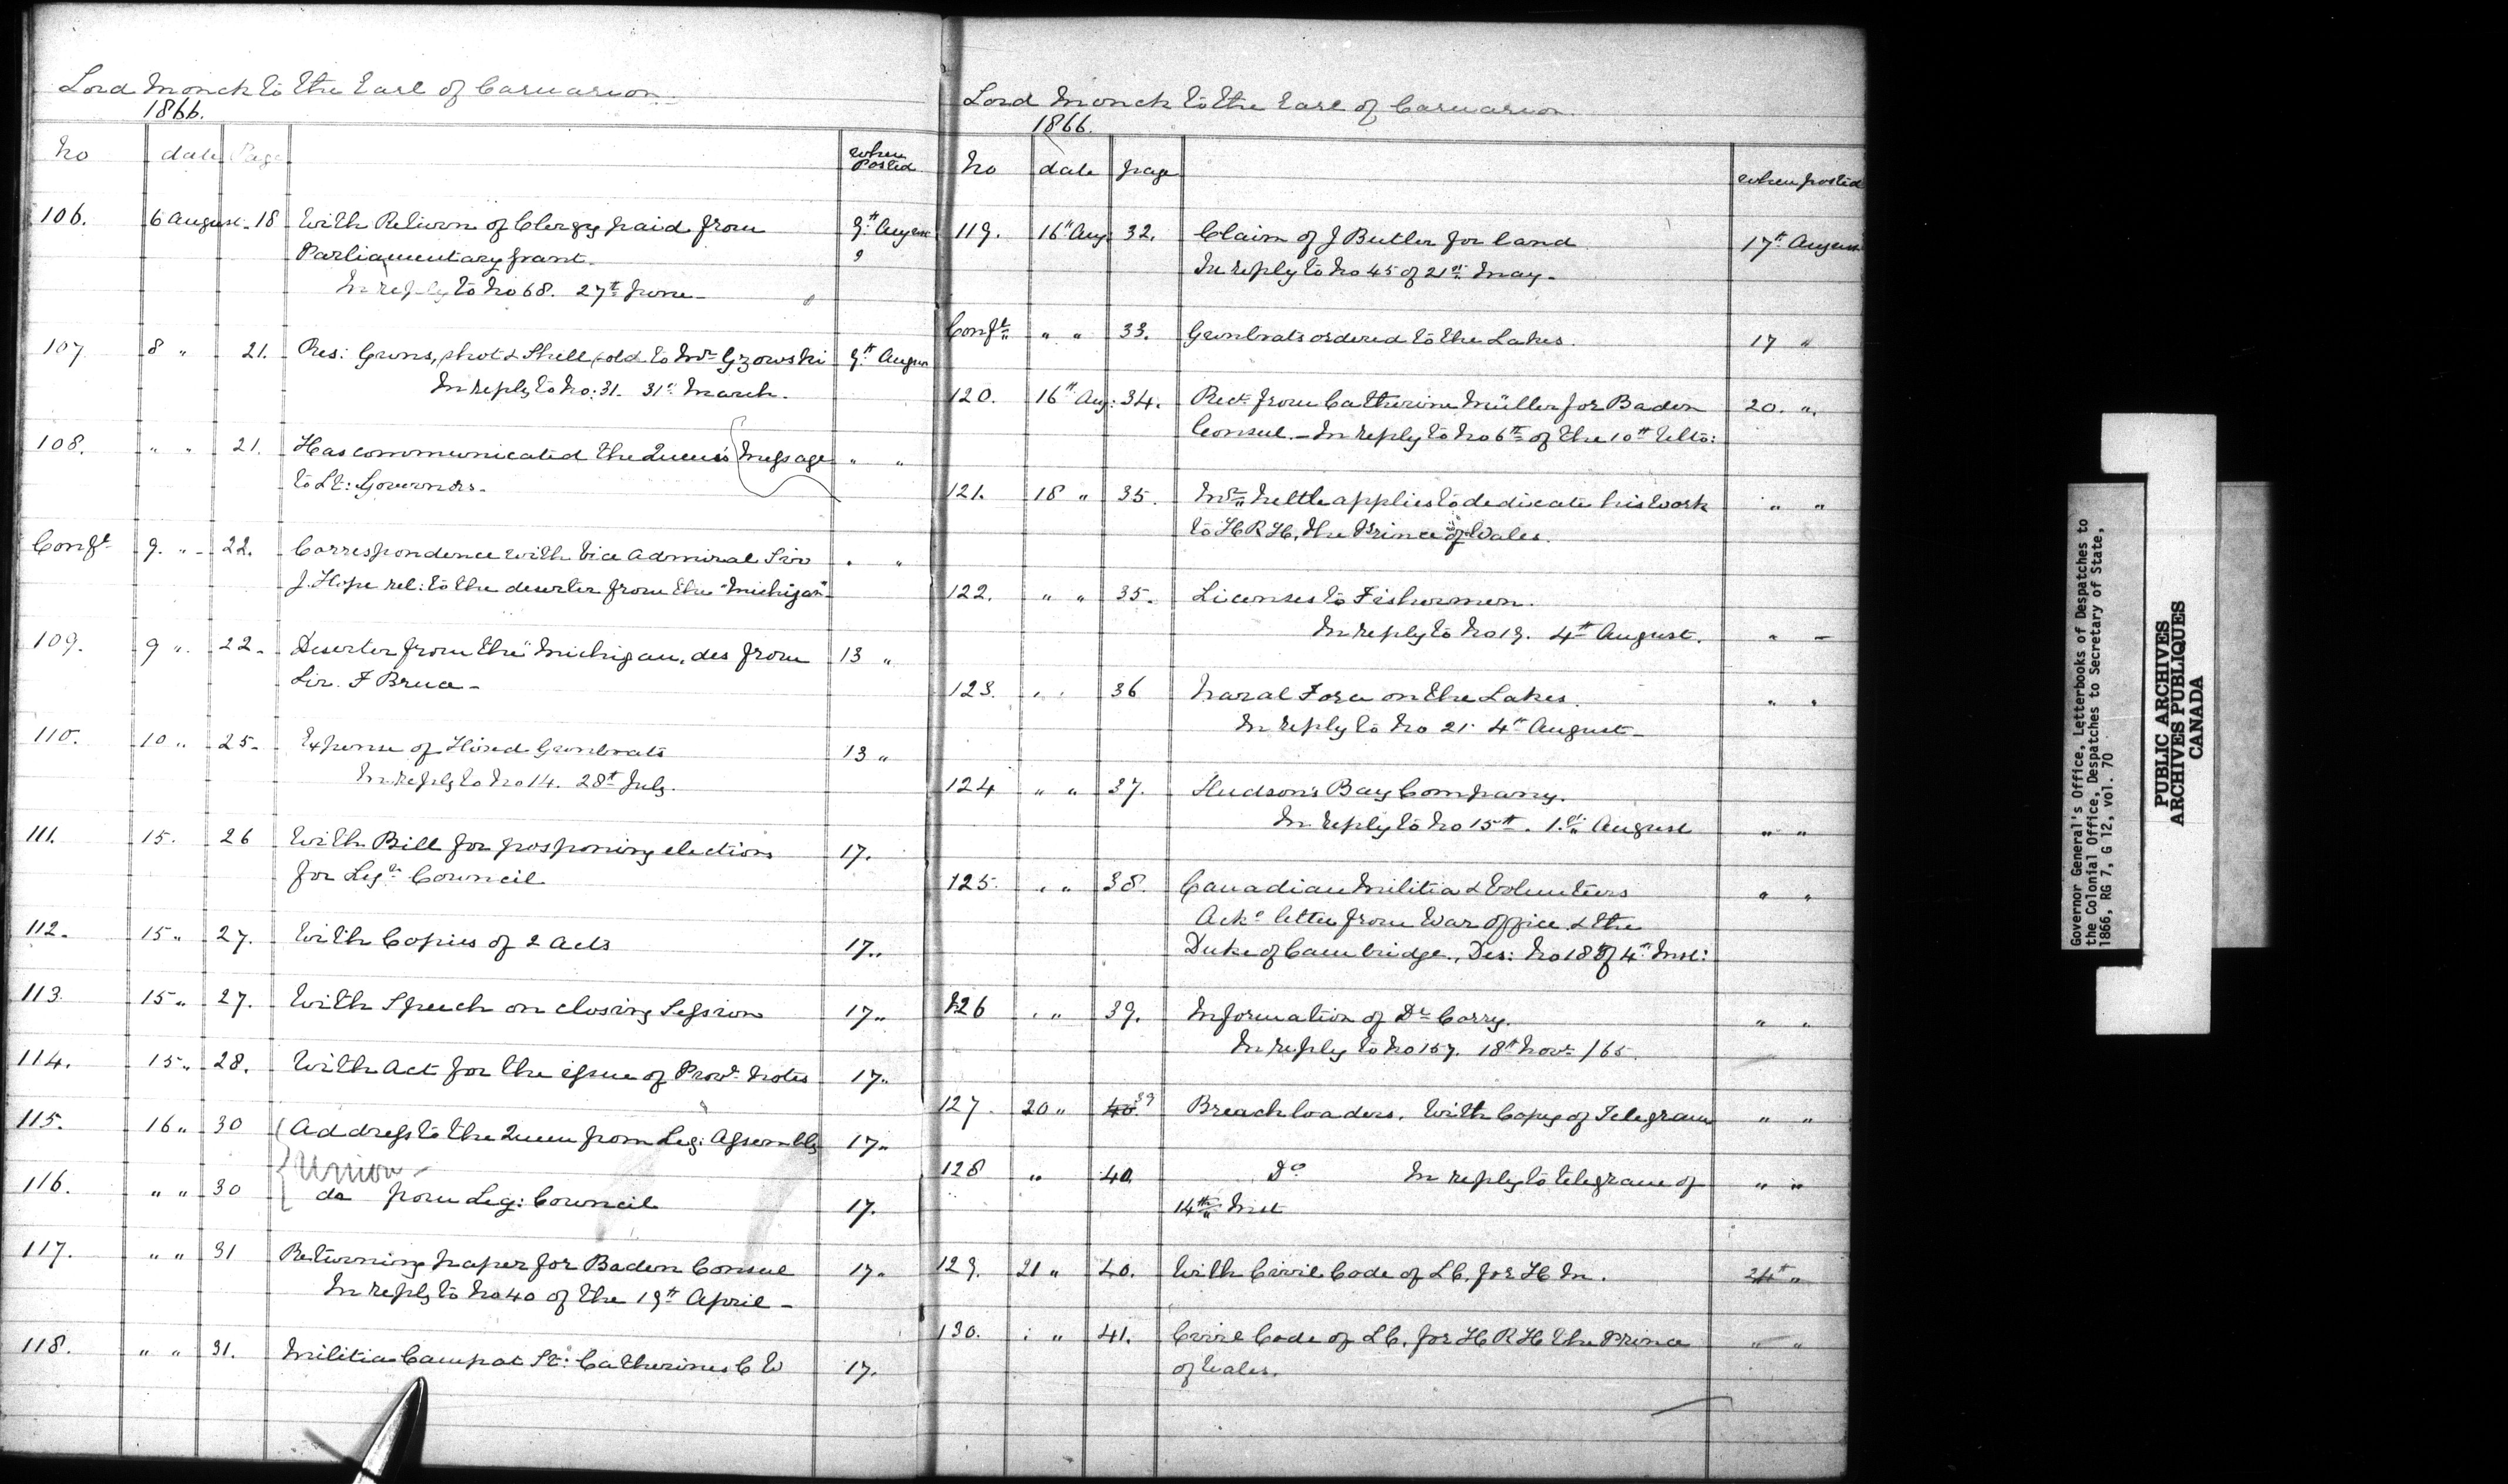 Lord Monck to the Earl of Carnarvon
1866.
No date Page when Posted
106. 6 August. 18 With Return of Clergy paid from 9th August
Parliamentary grant.
In reply to No 68. 27th June
107 8 " 21. Res: Guns, shot & Shell sold to Mr Gzowski 9th August
In reply to No: 31. 31st March.
108. " " 21. Has communicated the Queen's Message " "
to Lt: Governors.
Conf'l 9. " 22. Correspondence with Vice Admiral Sir " "
J. Hope rel: to the deserter from the "Michigan"
109. 9 " 22. Deserter from the "Michigan. des from 13 "
Sir. F Bruce
110. 10 " 25. Expense of Hired Gunboats 13 "
In reply to No 14. 28th July.
111. 15. 26 With Bill for posponing elections 17.
for Leg've Council
112. 15 " 27. With Copies of 2 Acts 17 "
113. 15 " 27. With Speech on closing Session 17 "
114. 15 " 28. With Act for the issue of Prov'l Notes 17 "
115. 16 " 30 Address to the Queen from Leg: Assembly 17 "
Union
116. " " 30 do from Leg: Council 17.
117. " " 31 Returning paper for Baden Consul 17.
In reply to No 40 of the 19th April
118. " " 31. Militia Camp at St: Catherines C W 17.
Lord Monck to the Earl of Carnarvon
1866.
No date page when posted
119. 16th Aug 32. Claim of J Butler for land 17th August
In reply to No 45 of 21st May.
Conf'l " " 33. Gunboats ordered to the Lakes. 17 "
120. 16th Aug: 34. Rect from Catherine Müller for Baden 20. "
Consul. In reply to No 6th of the 10th Ulto:
121. 18 " 35. Mr Nettle applies to dedicate his work " "
to H R H. the Prince of Wales.
122. " " 35. Licenses to Fishermen.
In reply to No 19. 4th August. " "
123. " " 36 Naval Force on the Lakes. " "
In reply to No 21 4th August
124 " " 37. Hudson's Bay Company.
In reply to No 15th. 1st August " "
125. " " 38. Canadian Militia & Volunteers " "
Ack'g letter from War Office & the
Duke of Cambridge. Des: No 18 of 4th Inst:
126 " " 39. Information of Dr Corry. " "
In reply to No 157. 18th Novr /65.
127. 20 " 40. 39 Breach loaders. With Copy of Telegram " "
128 " 40 Do In reply to telegram of " "
14th Inst
129. 21 " 40. With Civil Code of LC. for H M. 24th "
130. " " 41. Civil Code of LC. for H R H the Prince " "
of Wales.
Governor General's Office, Letterbooks of Despatches to
the Colonial Office, Despatches to Secretary of State,
1866, RG 7, G 12, vol. 70
PUBLIC ARCHIVES
ARCHIVES PUBLIQUES
CANADA